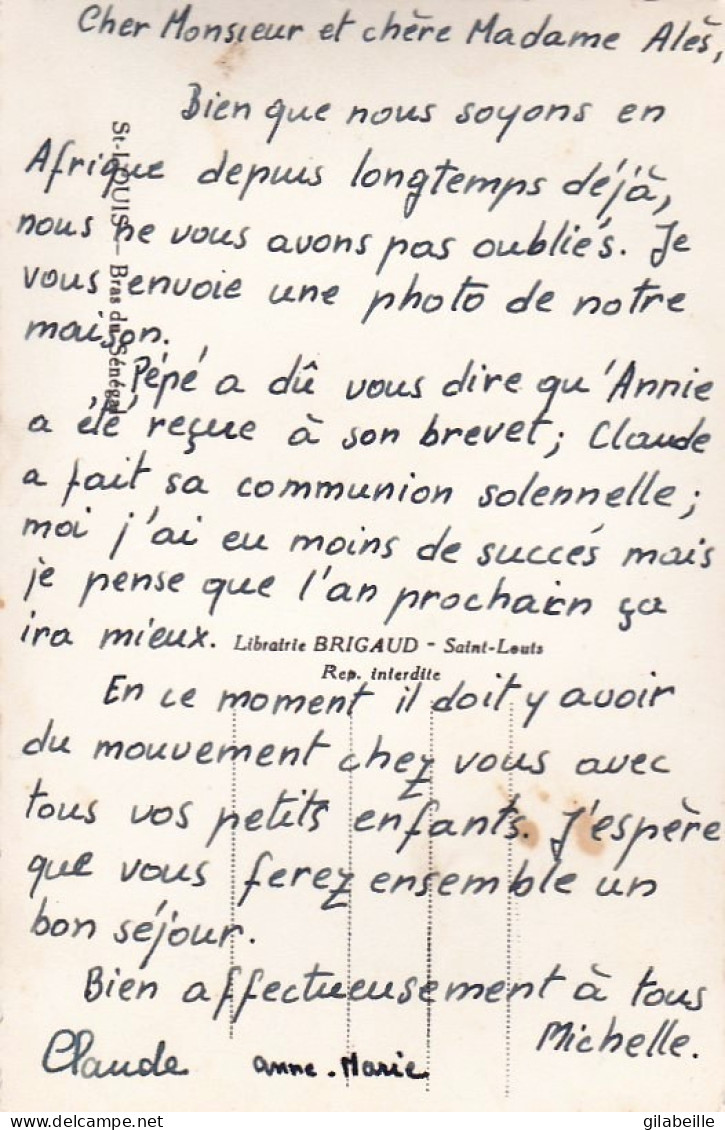 Cher Monsieur et chère Madame Alès,
Bien que nous soyons en
Afrique depuis longtemps déjà,
nous ne vous avons pas oubliés. Je
vous envoie une photo de notre
maison.
Pépé a dû vous dire qu'Annie
a été reçue à son brevet; Claude
a fait sa communion solennelle;
moi j'ai eu moins de succés mais
je pense que l'an prochain ça
ira mieux.
En ce moment il doit y avoir
du mouvement chez vous avec
tous vos petits enfants. J'espère
que vous ferez ensemble un
bon séjour.
Bien affectueusement à tous
Michelle.
Claude anne-Marie
St-LOUIS — Bras du Sénégal
Librairie BRIGAUD - Saint-Louis
Rep. interdite
gilabeille